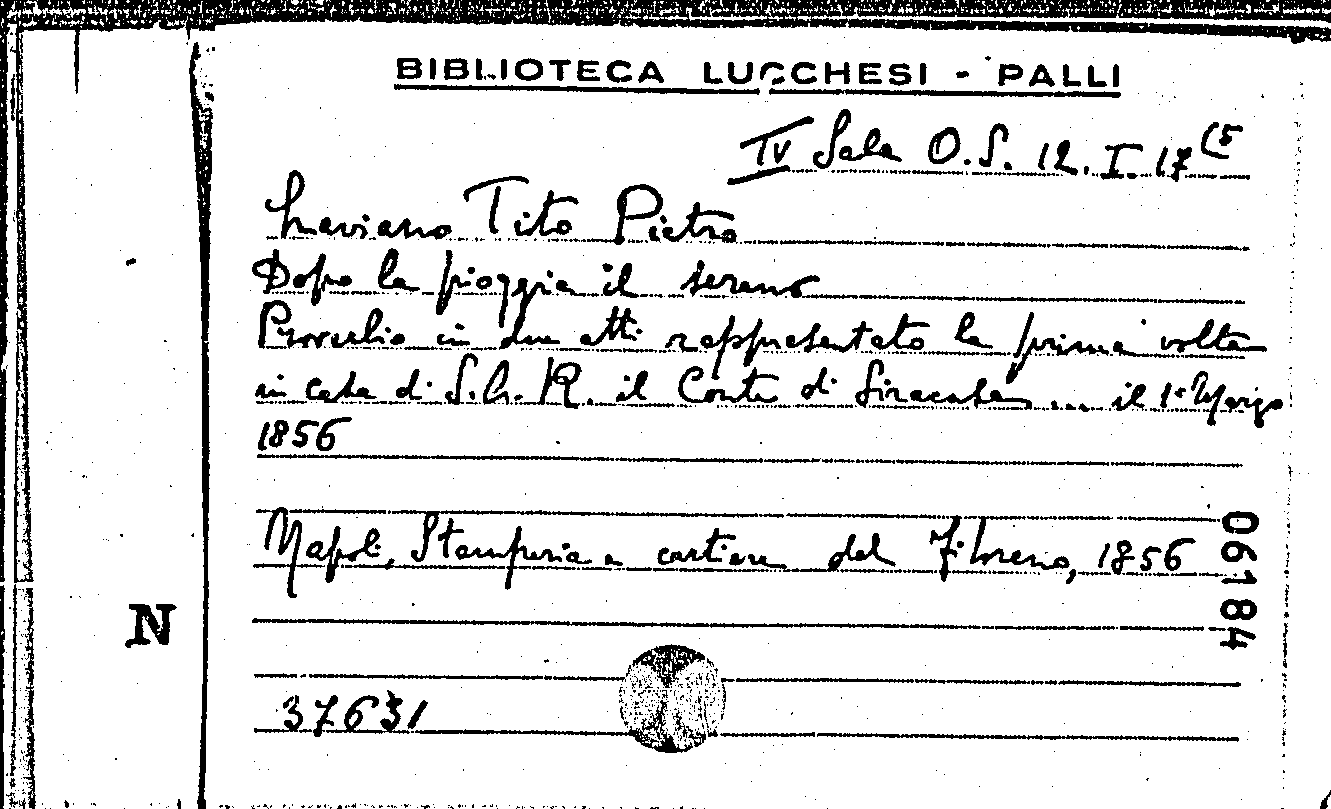 BIBLIOTECA LUCCHESI - PALLI
IV Sala O.S. 12. I. 17 (5
Laviano Tito Pietro
Dopo la pioggia il sereno
Proverbio in due atti rappresentato la prima volta
in casa di S.A.R. il Conte di Siracusa ... il 1° Marzo
1856
Napoli, Stamperia e cartiere del Fibreno, 1856
06184
N
37631